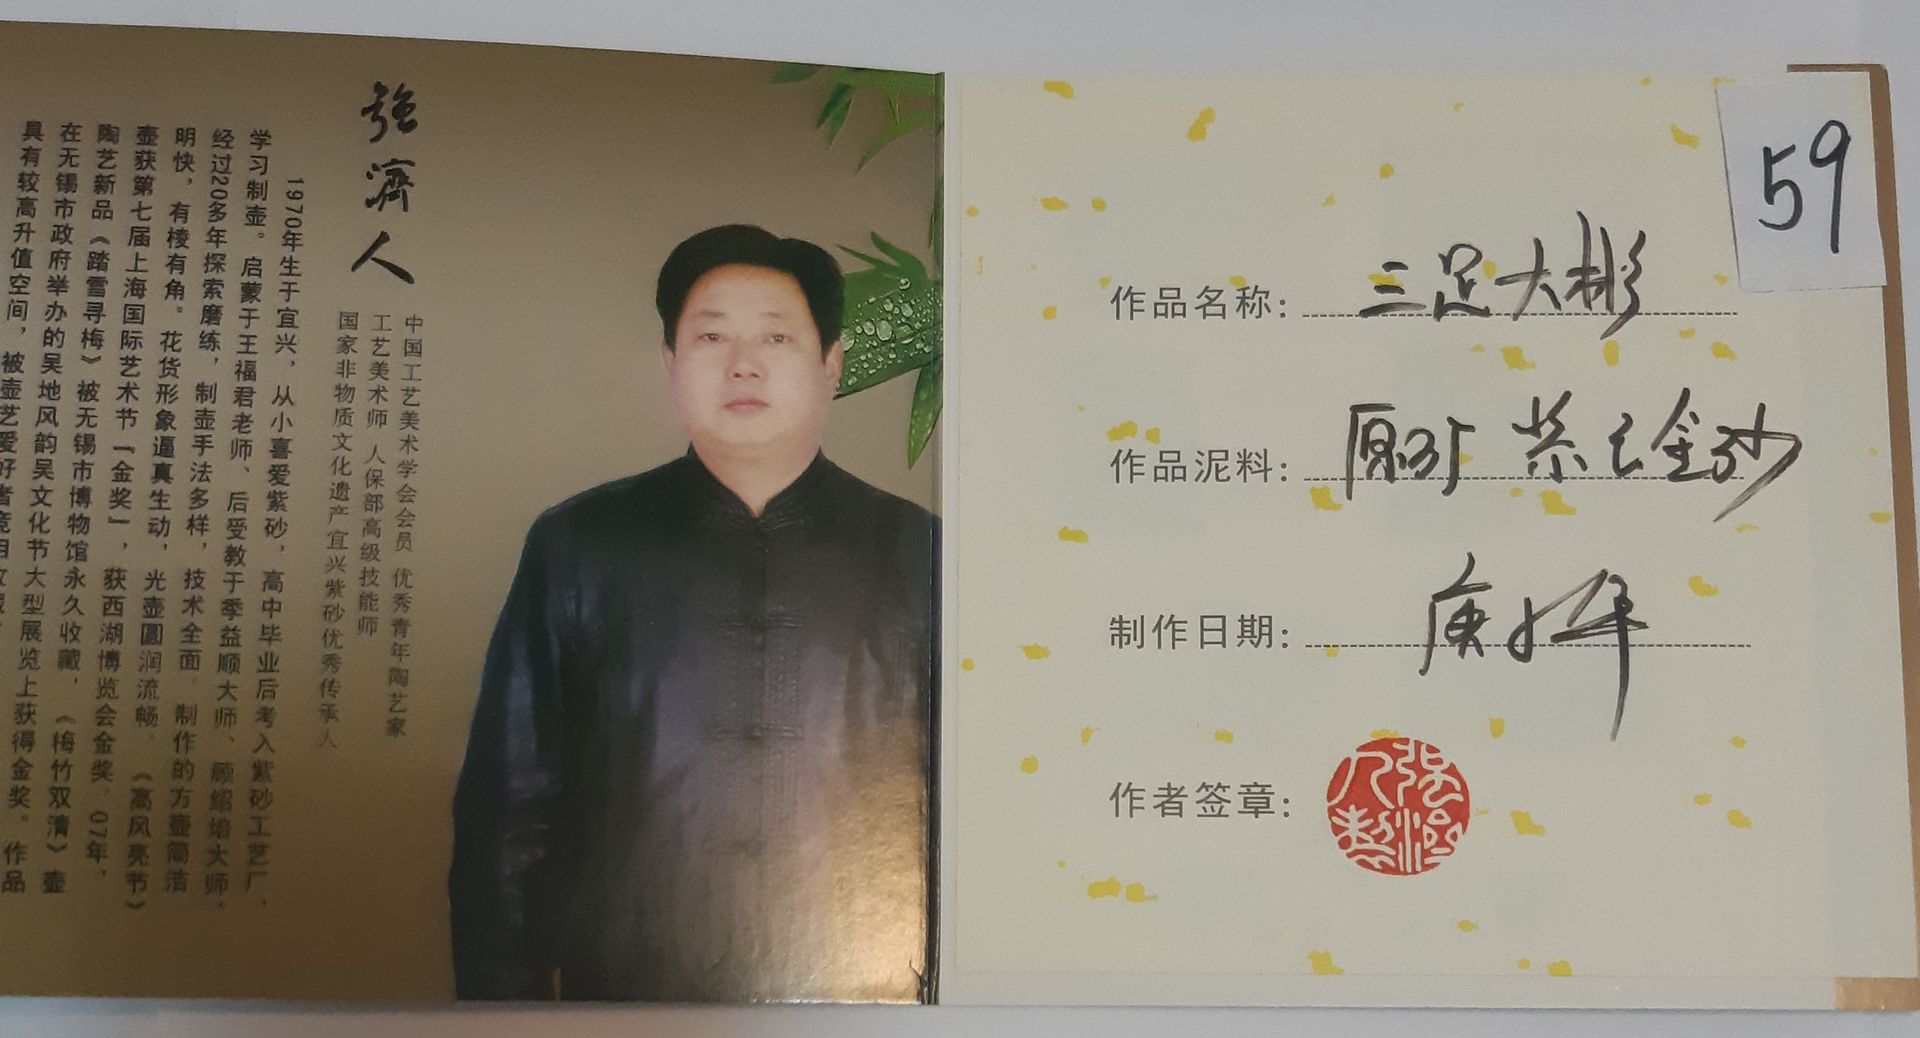 强濟人
中国工艺美术学会会员 优秀青年陶艺家
工艺美术师 人保部高级技能师
国家非物质文化遗产宜兴紫砂优秀传承人
1970年生于宜兴，从小喜爱紫砂，高中毕业后考入紫砂工艺厂，
学习制壶。启蒙于王福君老师、后受教于季益顺大师、顾绍培大师。
经过20多年探索磨练，制壶手法多样，技术全面。制作的方壶简洁
明快，有棱有角。花货形象逼真生动，光壶圆润流畅。《高风亮节》
壶获第七届上海国际艺术节「金奖」，获西湖博览会金奖，07年，
陶艺新品《踏雪寻梅》被无锡市博物馆永久收藏，《梅竹双清》壶
在无锡市政府举办的吴地风韵吴文化节大型展览上获得金奖。作品
具有较高升值空间，被壶艺爱好者竞相收藏
59
作品名称： 三足大彬
作品泥料： 原矿 紫 金砂
制作日期： 庚子年
作者签章：